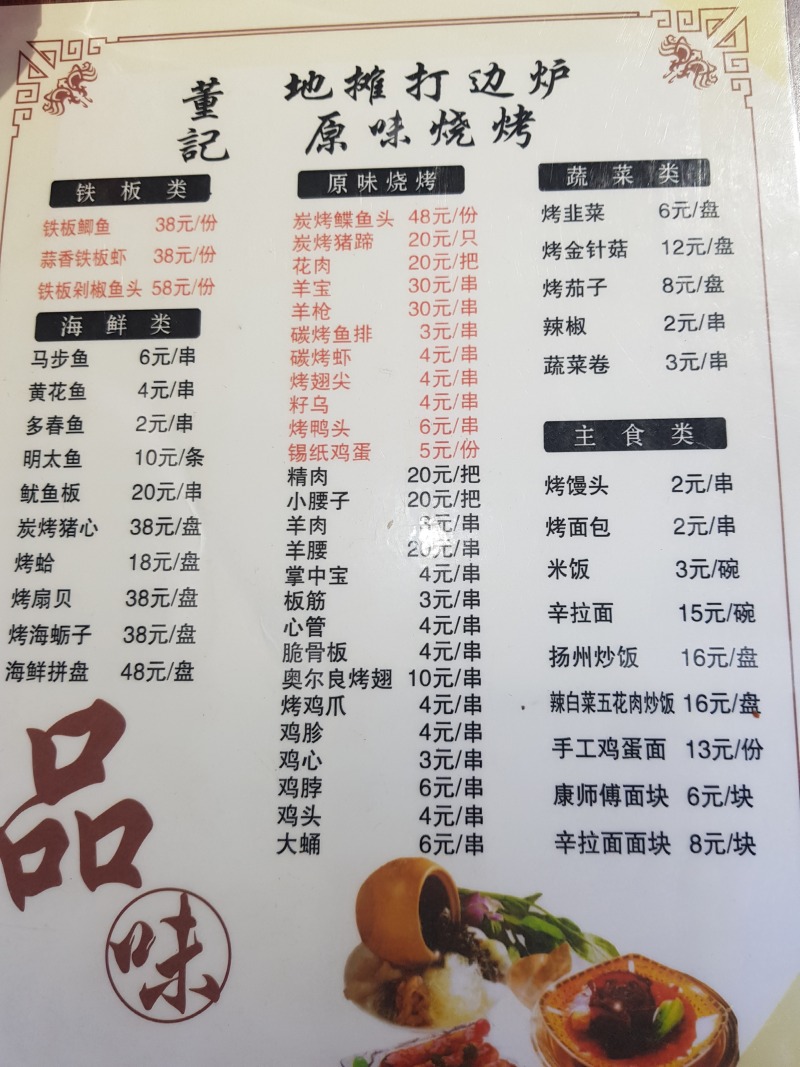 董記
地摊打边炉
原味烧烤
铁板类
铁板鲫鱼 38元/份
蒜香铁板虾 38元/份
铁板剁椒鱼头 58元/份
海鲜类
马步鱼 6元/串
黄花鱼 4元/串
多春鱼 2元/串
明太鱼 10元/条
鱿鱼板 20元/串
炭烤猪心 38元/盘
烤蛤 18元/盘
烤扇贝 38元/盘
烤海蛎子 38元/盘
海鲜拼盘 48元/盘
品味
原味烧烤
炭烤鲽鱼头 48元/份
炭烤猪蹄 20元/只
花肉 20元/把
羊宝 30元/串
羊枪 30元/串
碳烤鱼排 3元/串
碳烤虾 4元/串
烤翅尖 4元/串
籽乌 4元/串
烤鸭头 6元/串
锡纸鸡蛋 5元/份
精肉 20元/把
小腰子 20元/把
羊肉 元/串
羊腰 20元/串
掌中宝 4元/串
板筋 3元/串
心管 4元/串
脆骨板 4元/串
奥尔良烤翅 10元/串
烤鸡爪 4元/串
鸡胗 4元/串
鸡心 3元/串
鸡脖 6元/串
鸡头 4元/串
大蛹 6元/串
蔬菜类
烤韭菜 6元/盘
烤金针菇 12元/盘
烤茄子 8元/盘
辣椒 2元/串
蔬菜卷 3元/串
主食类
烤馒头 2元/串
烤面包 2元/串
米饭 3元/碗
辛拉面 15元/碗
扬州炒饭 16元/盘
辣白菜五花肉炒饭 16元/盘
手工鸡蛋面 13元/份
康师傅面块 6元/块
辛拉面面块 8元/块